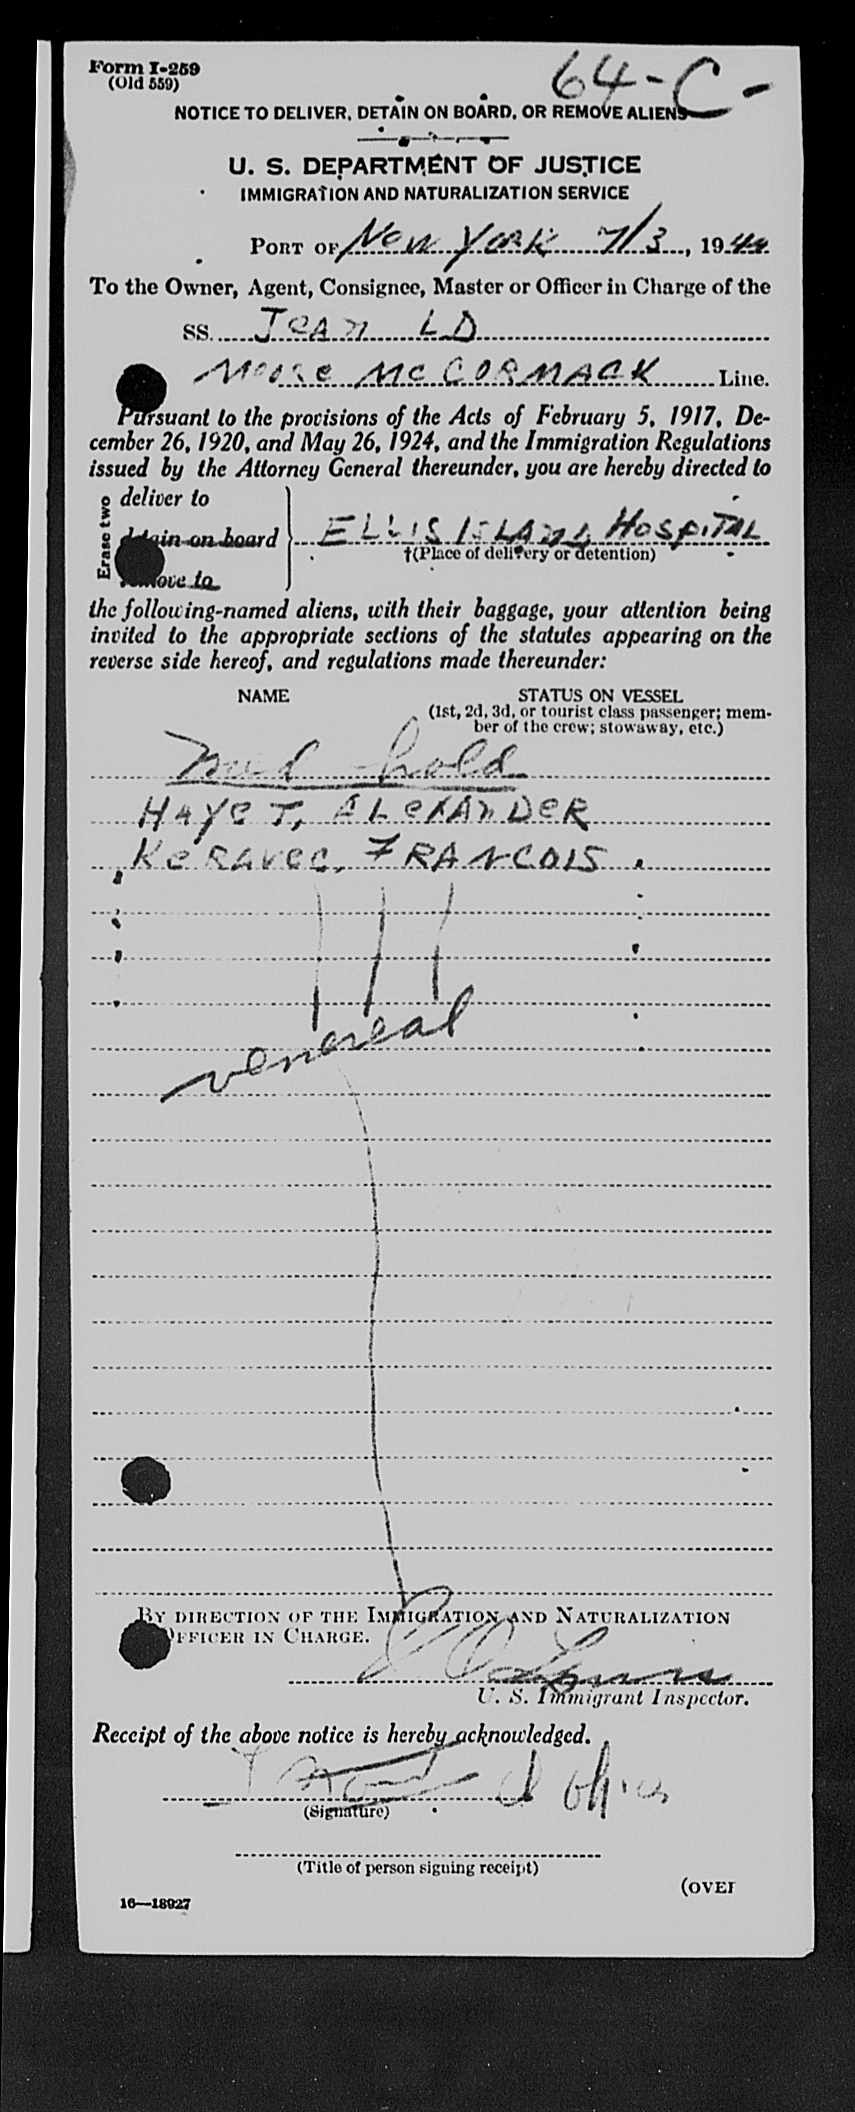 Form I-259
(Old 559)
64-C-
NOTICE TO DELIVER, DETAIN ON BOARD, OR REMOVE ALIENS
U. S. DEPARTMENT OF JUSTICE
IMMIGRATION AND NATURALIZATION SERVICE
PORT OF New York 7/3, 1944
To the Owner, Agent, Consignee, Master or Officer in Charge of the
SS. Jean LD
Moore McCORMACK Line.
Pursuant to the provisions of the Acts of February 5, 1917, De-
cember 26, 1920, and May 26, 1924, and the Immigration Regulations
issued by the Attorney General thereunder, you are hereby directed to
Erase two
deliver to
detain on board
remove to
ELLIS ISLAND HOSPITAL
†(Place of delivery or detention)
the following-named aliens, with their baggage, your attention being
invited to the appropriate sections of the statutes appearing on the
reverse side hereof, and regulations made thereunder:
NAME
STATUS ON VESSEL
(1st, 2d, 3d, or tourist class passenger; mem-
ber of the crew; stowaway, etc.)
Med hold
HAYeT, ALeXANDeR
KeRAvec, FRANCOIS
venereal
BY DIRECTION OF THE IMMIGRATION AND NATURALIZATION
OFFICER IN CHARGE.
U. S. Immigrant Inspector.
Receipt of the above notice is hereby acknowledged.
(Signature)
(Title of person signing receipt)
(OVER
16—18927